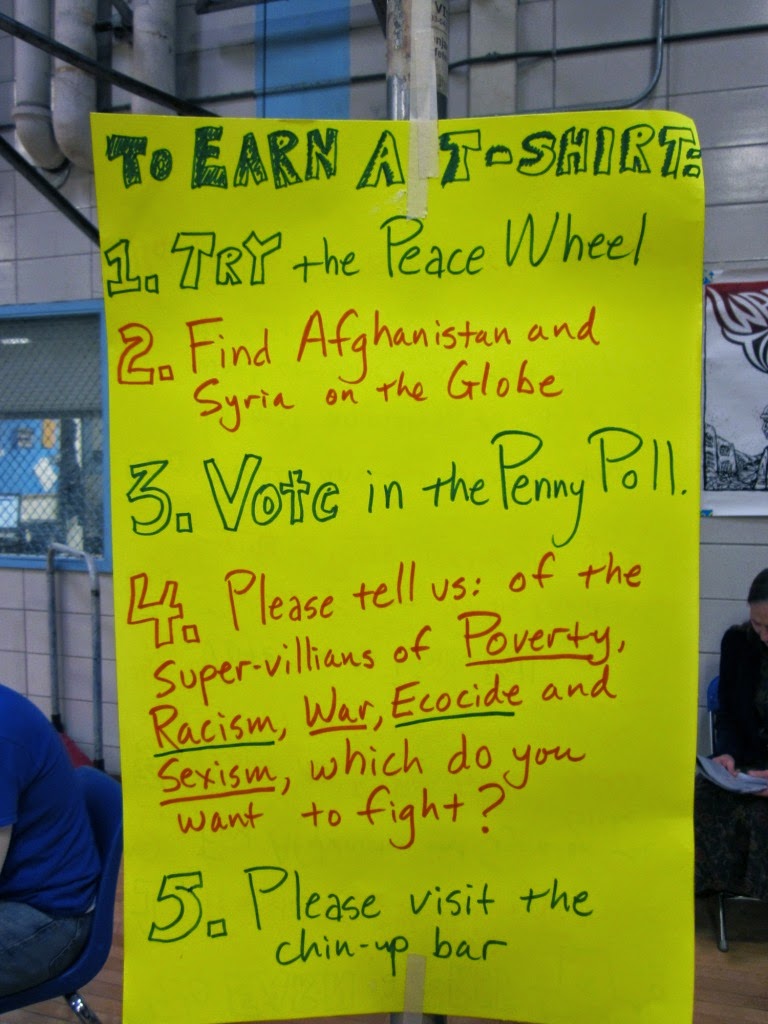 TO EARN A T-SHIRT:
1. TRY the Peace Wheel
2. Find Afghanistan and
Syria on the Globe
3. Vote in the Penny Poll.
4. Please tell us: of the
super-villians of Poverty,
Racism, War, Ecocide and
Sexism, which do you
want to fight?
5. Please visit the
chin-up bar